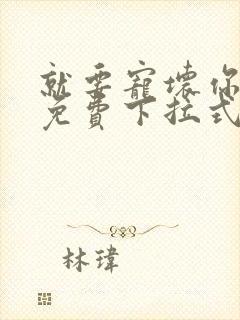 就要寵壞你
免費下拉式
林瑋